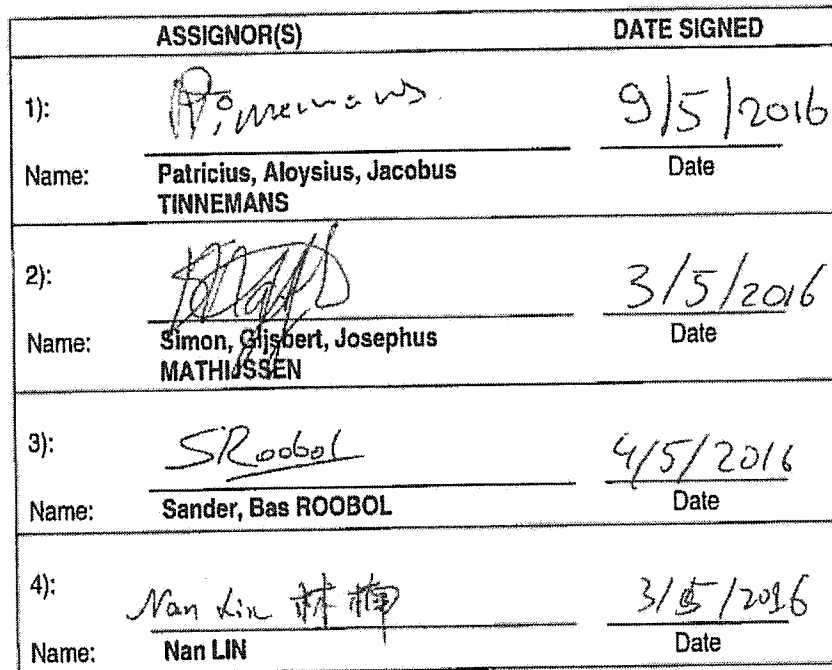 ASSIGNOR(S) DATE SIGNED
1): Tinnemans 9/5/2016
Name: Patricius, Aloysius, Jacobus Date
TINNEMANS
2): 3/5/2016
Name: Simon, Gijsbert, Josephus Date
MATHIJSSEN
3): SRoobol 4/5/2016
Name: Sander, Bas ROOBOL Date
4): Nan Lin 林楠 3/5/2016
Name: Nan LIN Date